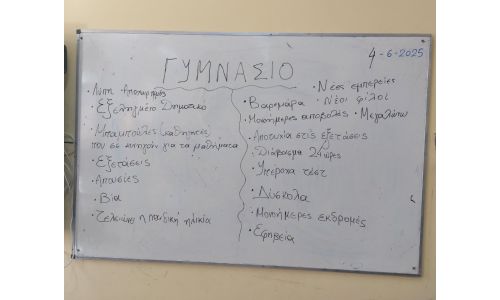 4-6-2025
ΓΥΜΝΑΣΙΟ
• Λύπη Αποχωρισμός
• Εξεληγμένο Δημοτικό
• Μπαμπούλες καθηγητές
που σε κυνηγάν για τα μαθήματα
• Εξετάσεις
• Απουσίες
• Βία
• Τελειώνει η παιδική ηλικία
• Νέες εμπειρίες
• Νέοι φίλοι
• Βαρεμάρα
• Μονοήμερες αποβολές • Μεγαλώνω
• Αποτυχία στις εξετάσεις
• Διάβασμα 24 ώρες
• Υπέροχα τέστ
• Δύσκολα
• Μονοήμερες εκδρομές
• Εφηβεία